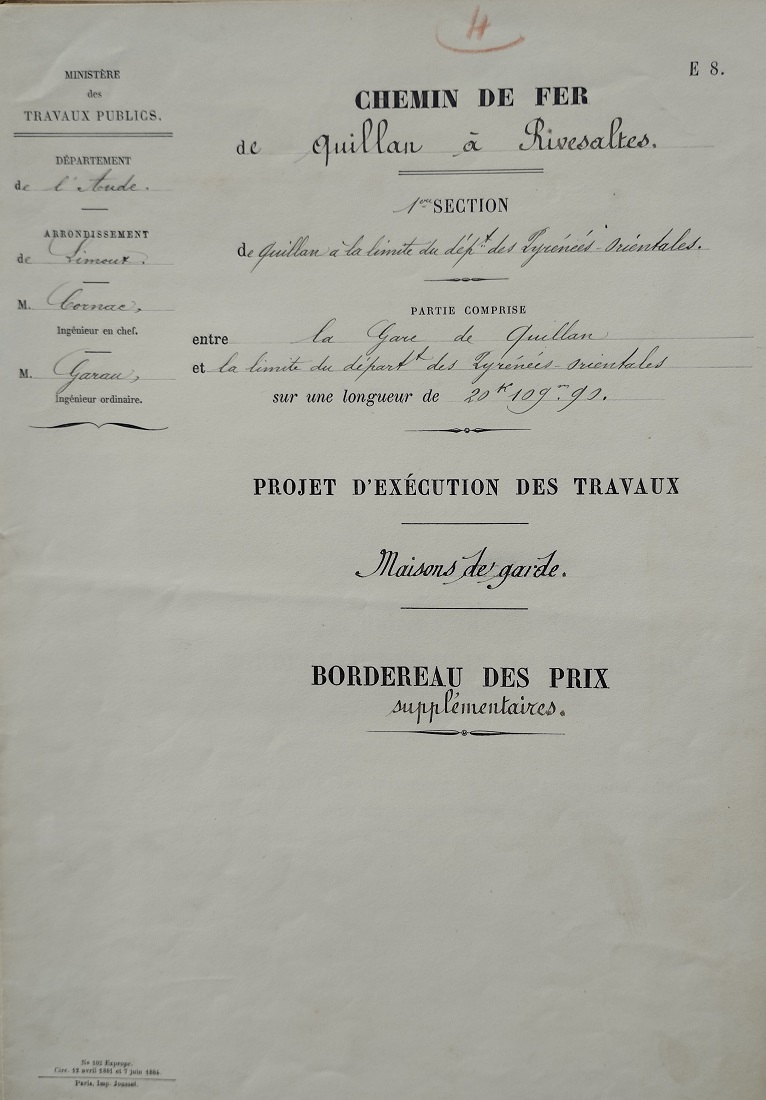 4
E 8.
MINISTÈRE
des
TRAVAUX PUBLICS.
DÉPARTEMENT
de l'Aude.
ARRONDISSEMENT
de Limoux.
M. Cornac,
Ingénieur en chef.
M. Garau,
Ingénieur ordinaire.
CHEMIN DE FER
de Quillan à Rivesaltes.
1ère SECTION
de Quillan à la limite du dépt des Pyrénées-Orientales.
PARTIE COMPRISE
entre la Gare de Quillan
et la limite du départt des Pyrénées-Orientales
sur une longueur de 20k 109m.90.
PROJET D'EXÉCUTION DES TRAVAUX
Maisons de garde.
BORDEREAU DES PRIX
supplémentaires.
Circ. 13 avril 1881 et 7 juin 1884
Paris, Imp. Jousset.